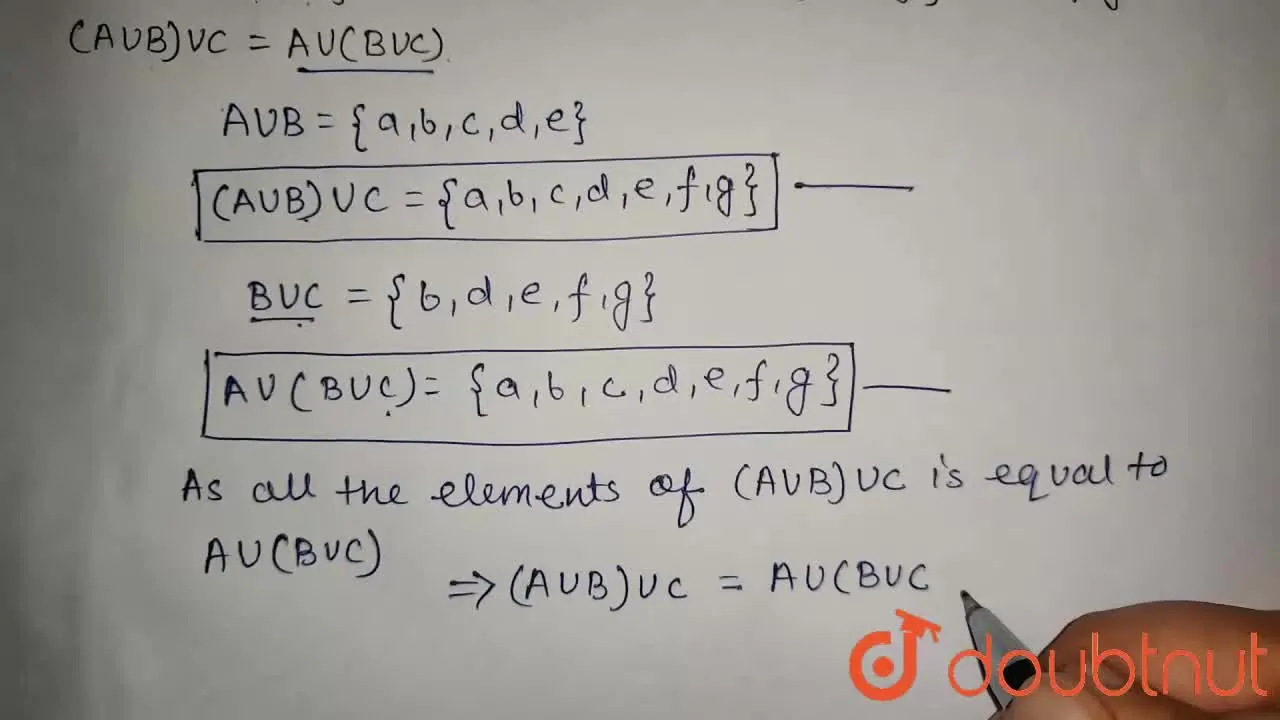 (AUB)UC = AU(BUC)
AUB = {a, b, c, d, e}
(AUB)UC = {a, b, c, d, e, f, g}
BUC = {b, d, e, f, g}
AU(BUC) = {a, b, c, d, e, f, g}
As all the elements of (AUB)UC is equal to
AU(BUC)
⇒ (AUB)UC = AU(BUC
doubtnut